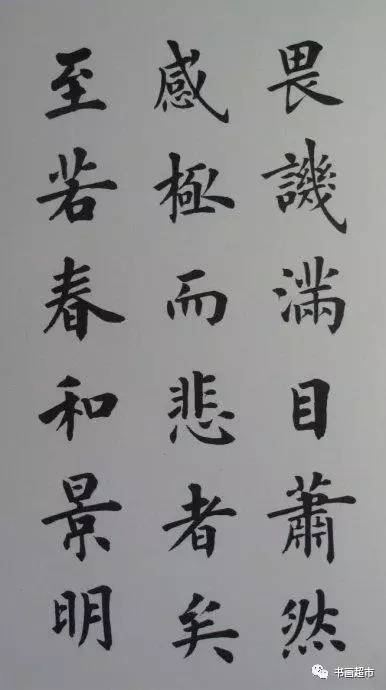 畏譏滿目蕭然
感極而悲者矣
至若春和景明
书画超市